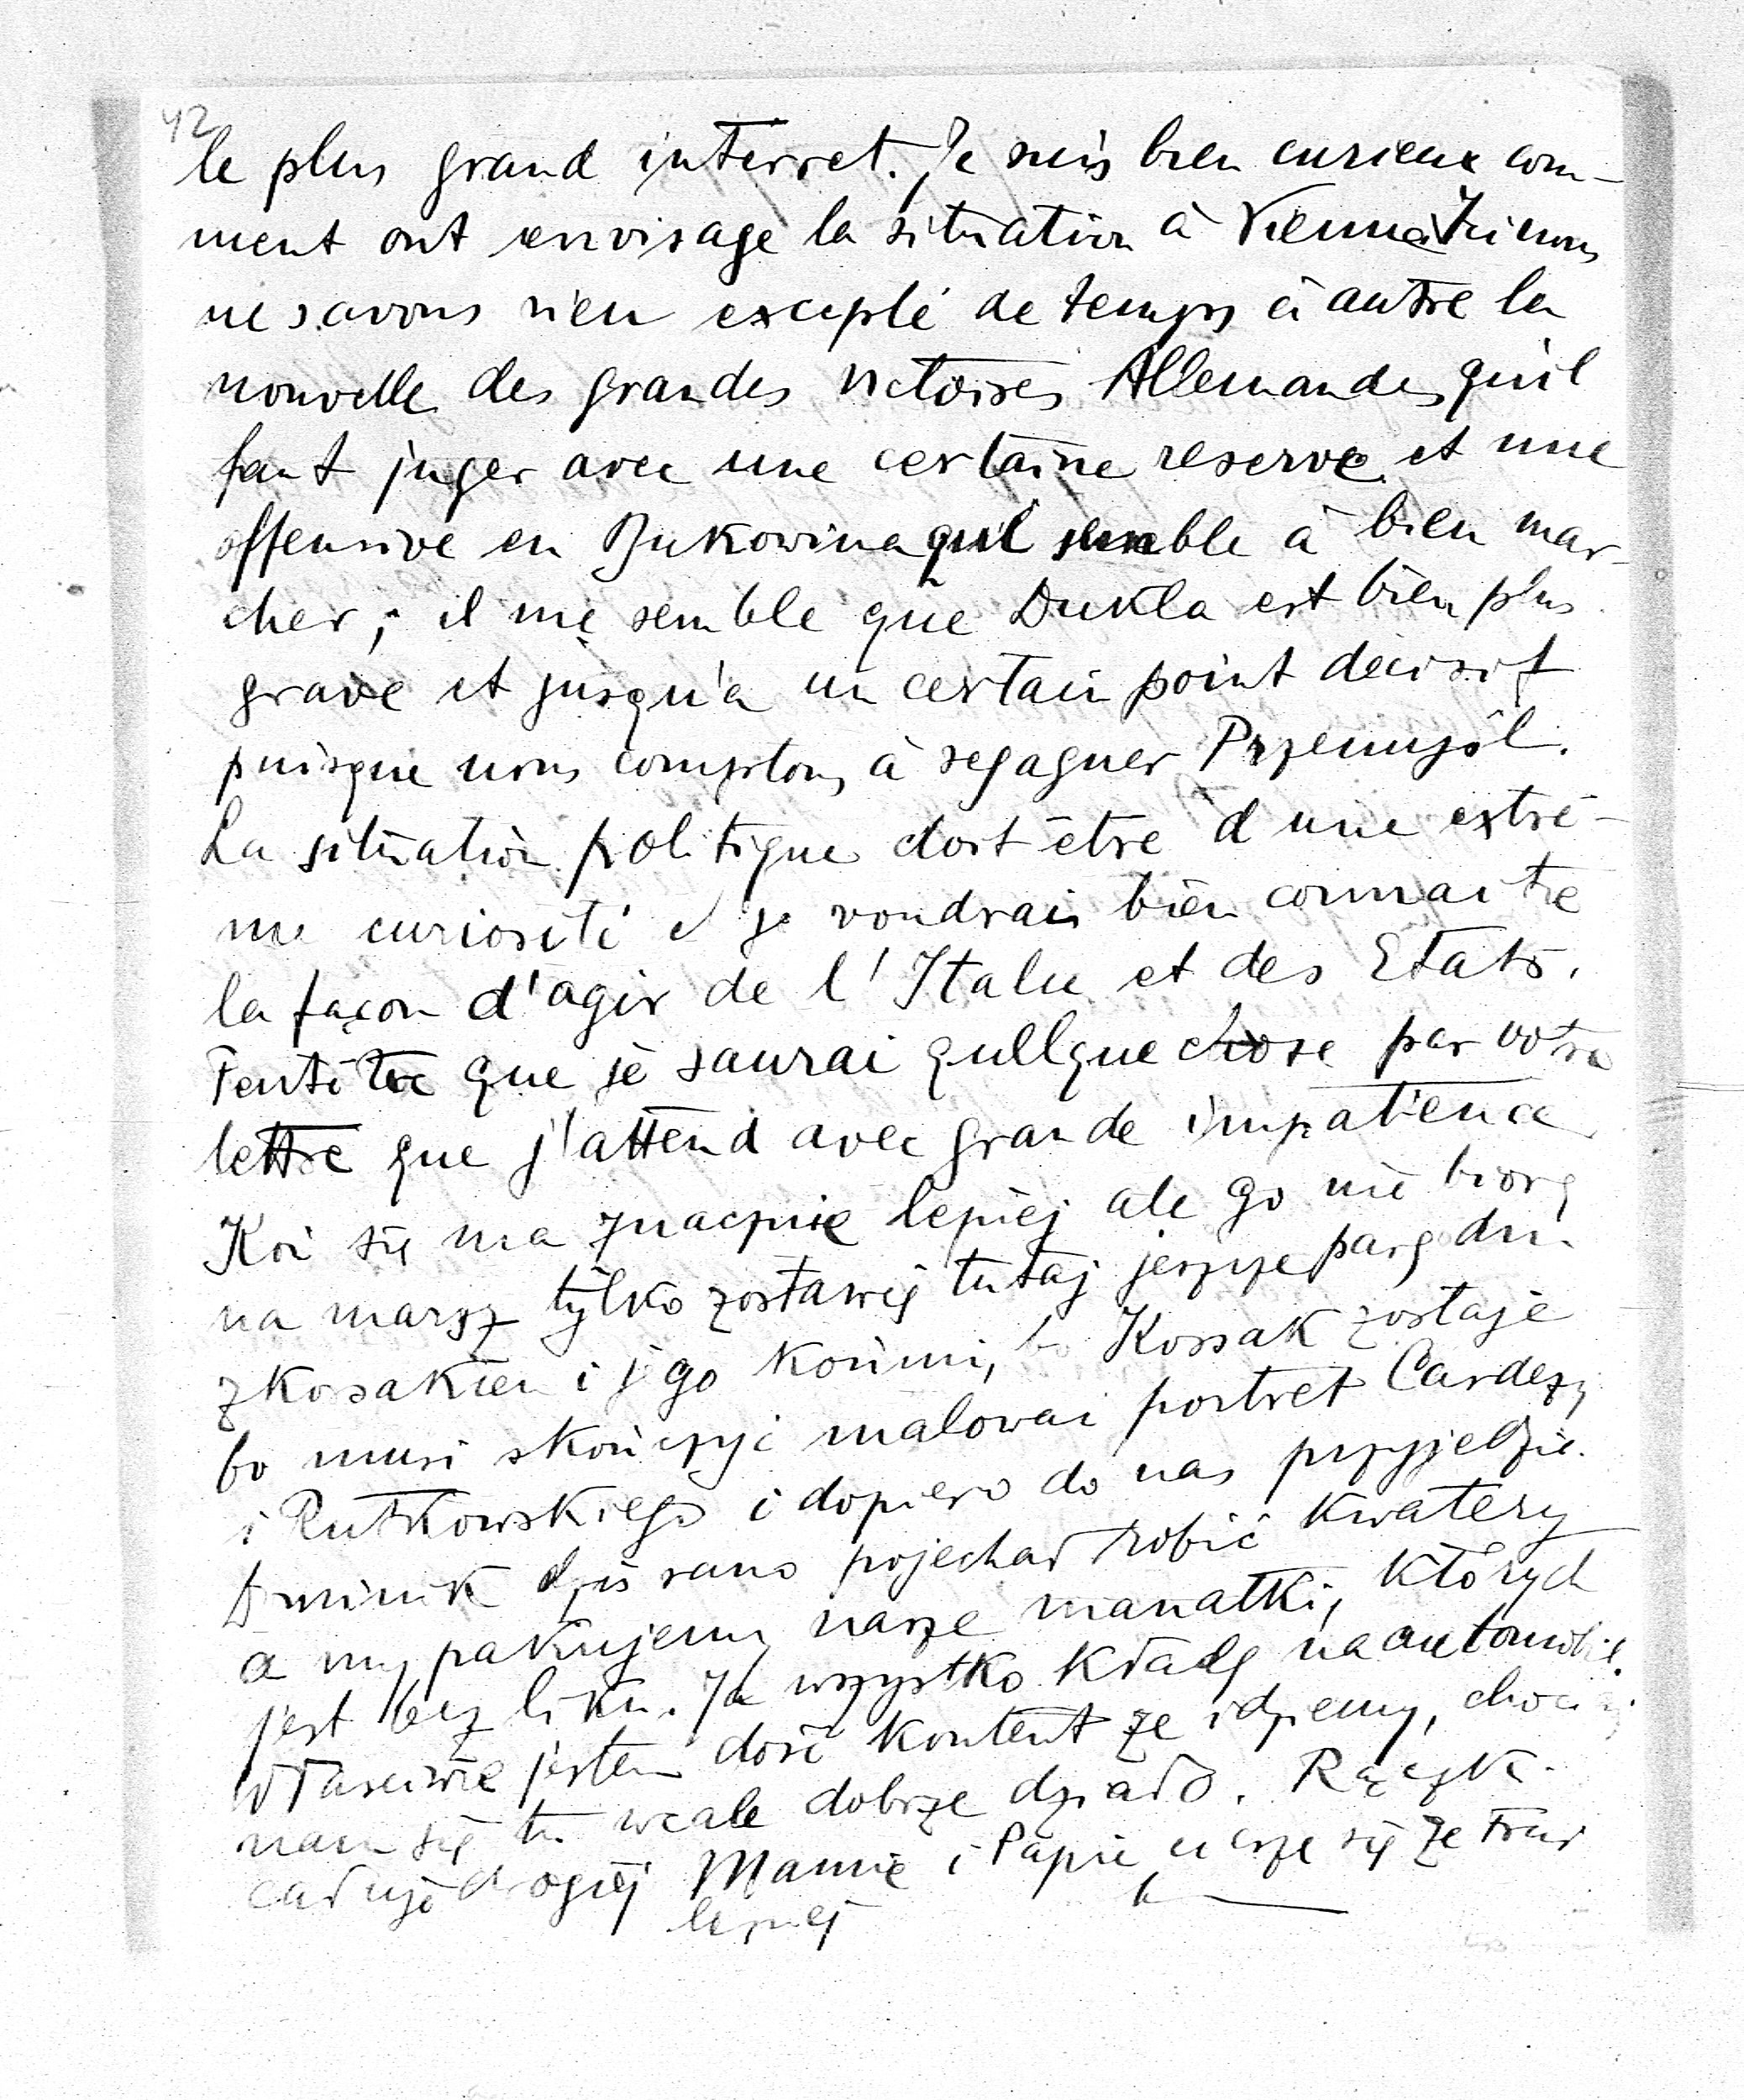 42
le plus grand interret. Je suis bien curieux com-
ment ont envisage la situation à Vienne Ici nous
ne savons rien excepté de temps à autre la
nouvelle des grandes victoires Allemandes qu'il
faut juger avec une certaine reserve et une
offensive en Bukowina qu'il semble à bien mar-
cher; il me semble que Dukla est bien plus
grave et jusqu'a un certain point decisif
puisque nous comptons à regagner Przemyśl.
La situation politique doit être d une extrê-
me curiosité e je voudrais bien connaitre
la façon d'agir de l'Italie et des Etats.
Peutêtre que je saurai quellque chose par votre
lettre que j'attend avec grande impatience
Koń się ma znacznie lepiej ale go nie biorę
na marsz tylko zostawię tutaj jeszcze parę dni
z Kossakiem i jego końmi, bo Kossak zostaje
bo musi skończyć malować portret Cardezy
i Rutkowskiego i dopiero do nas przyjedzie.
Dominik dziś rano pojechał robić kwatery
a my pakujemy nasze manatki, których
jest bez liku. Ja wszystko kładę na automobil.
Właściwie jestem dość kontent że idziemy, chociaż
nam się tu wcale dobrze działo. Rączki
całuję drogiej Mamie i Papie cieszę się że Fruś
lepiej